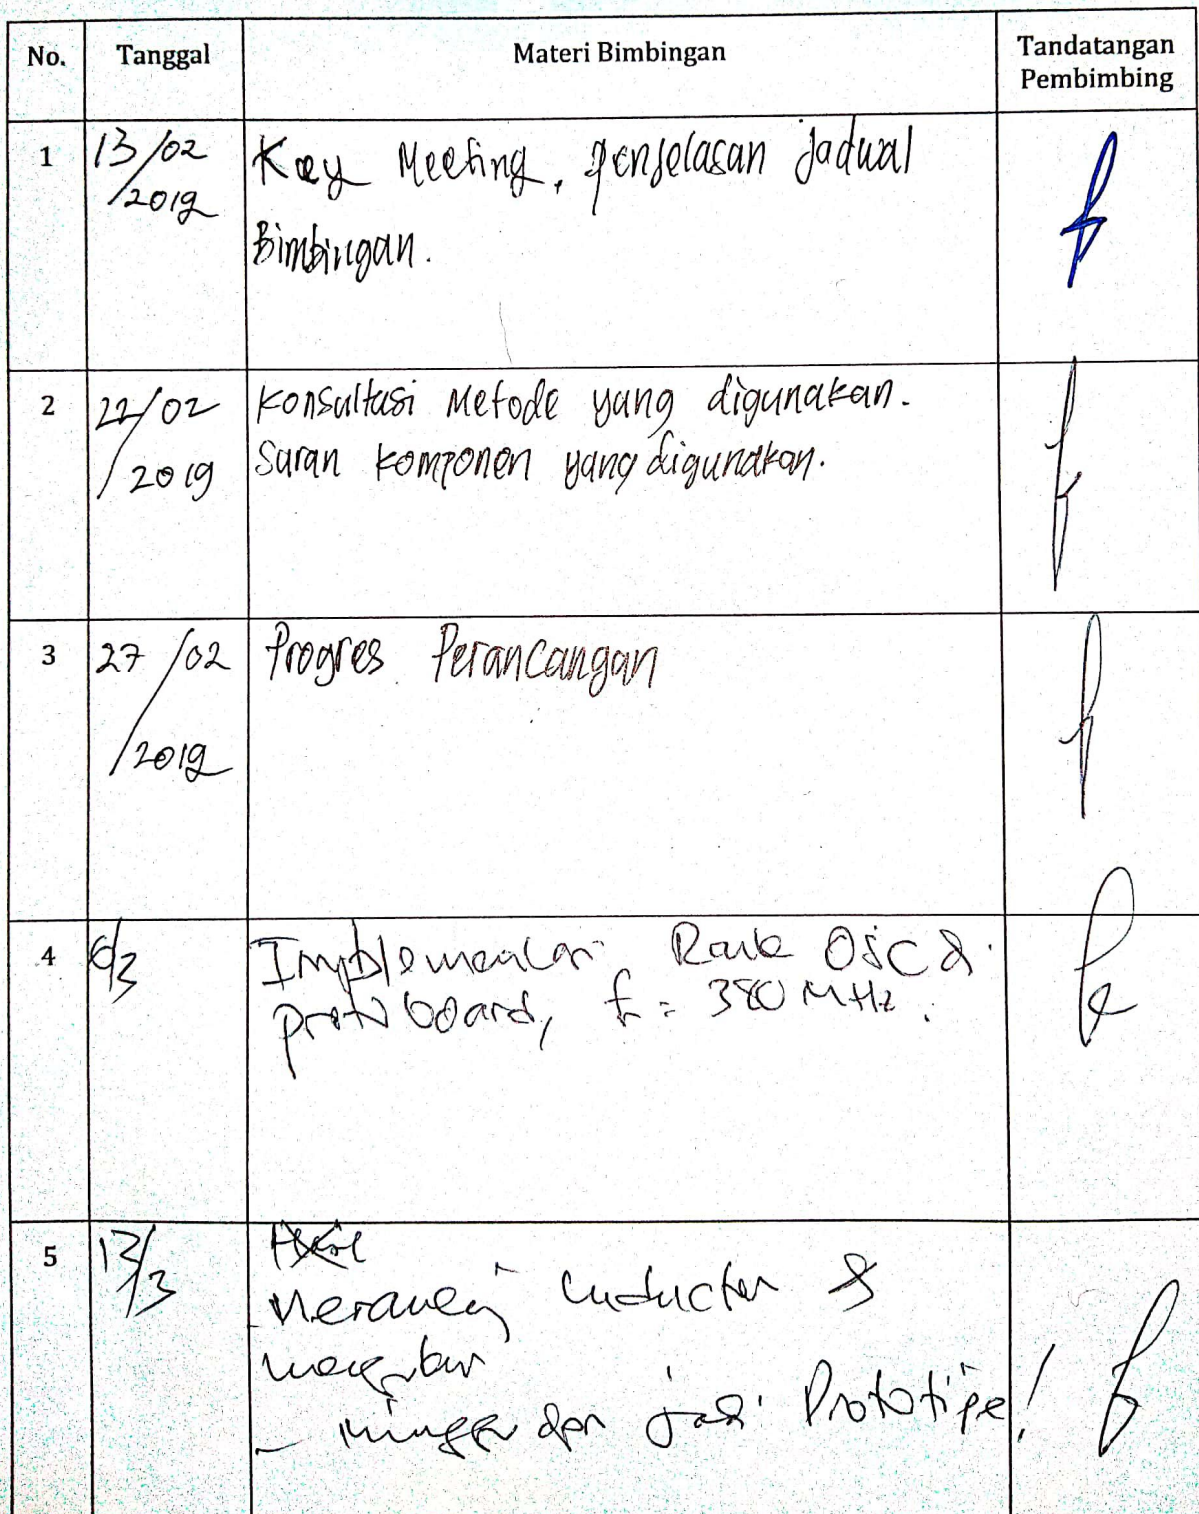 No. Tanggal Materi Bimbingan Tandatangan Pembimbing
1 13/02 Key Meeting, penjelasan jadwal
/2019 Bimbingan.
2 22/02 Konsultasi Metode yang digunakan.
/2019 Saran komponen yang digunakan.
3 27/02 Progres Perancangan
/2019
4 6/3 Implementasi Rank Osc di
protoboard, f = 380 MHz.
5 13/3
Merancang inductor &
- minggu dpn jadi Prototipe!